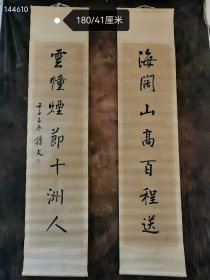 144610
180/41厘米
海闊山高百程送
雲幢煙節十洲人
孫文